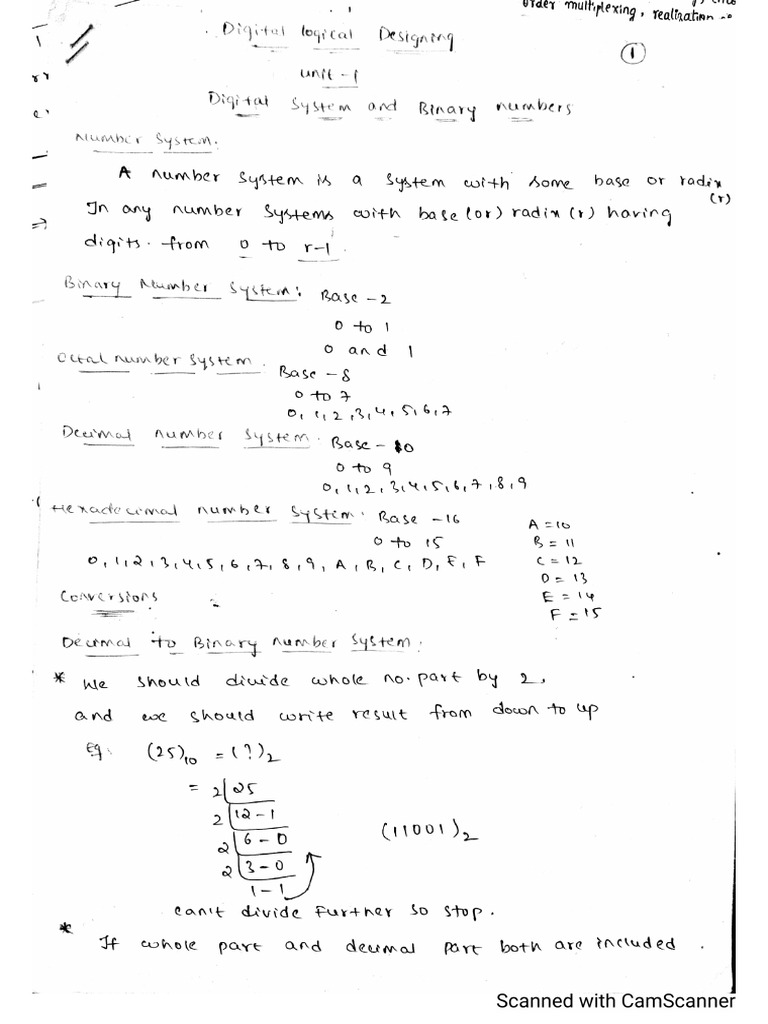 order multiplexing, realization
Digital logical Designing
1
unit-1
Digital System and Binary numbers
Number System:
A number system is a system with some base or radix
(r)
In any number systems with base (or) radix (r) having
digits from 0 to r-1
Binary Number System: Base - 2
0 to 1
0 and 1
Octal number System. Base - 8
0 to 7
0,1,2,3,4,5,6,7
Decimal number System. Base - 10
0 to 9
0,1,2,3,4,5,6,7,8,9
Hexadecimal number System. Base - 16
0 to 15
0,1,2,3,4,5,6,7,8,9,A,B,C,D,E,F
A = 10
B = 11
C = 12
D = 13
E = 14
F = 15
Conversions
Decimal to Binary number System:
* We should divide whole no. part by 2,
and we should write result from down to up
Eg: (25)10 = (?)2
= 2 | 25
2 | 12 - 1
2 | 6 - 0
2 | 3 - 0
1 - 1
(11001)2
can't divide further so stop.
* If whole part and decimal part both are included.
Scanned with CamScanner